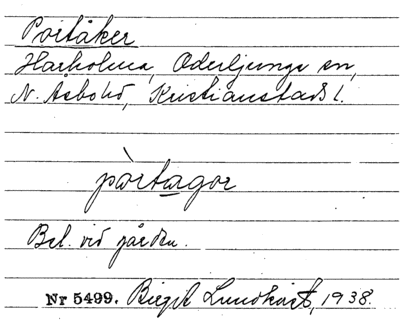 Portåker
Harholma, Oderljunga sn,
N. Åsbo hd, Kristianstads l.
pòrtagor
Bel. vid gården.
Nr 5499. Birgit Lundkvist, 1938.